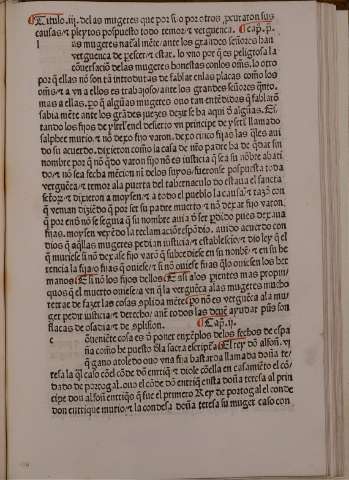 Titulo .iii. delas mugeres que por si o por otros procuran sus
causas ⁊ pleytos pospuesto todo temor ⁊ verguença. Cap. p.
las mugeres natal mẽte ante los grandes señores han
verguença de peser ⁊ estar. lo vno por q̃ es peligrosa la
cõuersaciõ delas mugeres honestas con los oms. lo otro
por q̃ ellas nõ son tã introdutas de fablar en las placas como los
oms ⁊ a vn a ellos es trabajoso ante los grandes señores q̃nto
mas a ellas. po q̃ algũas mugeres ouo tan entẽdidas q̃ fablarõ
sabia mẽte ante los grãdes juezes dezir se ha aqui d̃ algũas. Es
tando los fijos de ysrl enel desierto vn principe de ysrl llamado
salphec murio ⁊ nõ dexo fijo varon. dexo cinco fijas las q̃les aui
do su acuerdo. dixeron como la casa de ñro padre ha de q̃dar sin
nombre por q̃ nõ q̃do varon fijo nõ es justicia q̃ sea su nõbre abati
do ⁊ nõ sea fecha mẽcion ni delos suyos ⁊ fueronse pospuesta toda
verguẽça ⁊ temor ala puerta del tabernaculo do estaua el sancta
señor ⁊ dixeron a moysen ⁊ a todo el pueblo la causa ⁊ razõ con
q̃ venian diziẽdo q̃ por ser su padre muerto ⁊ nõ dexar fijo varon.
q̃ por eso nõ se seguia q̃ su nombre auia d̃ ser pdido pues dexaua
fijas. moysen veyẽdo la reclamaciõ respõdio. auido acuerdo con
dios q̃ aq̃llas mugeres pedian justicia ⁊ establescio ⁊ dio ley q̃ el
q̃ muriese si nõ dexase fijo varõ q̃ subcediese en su nonbr̃ ⁊ en su he
rencia la fija o fijas q̃ ouiese ⁊ si nõ ouiese fijas q̃ lo ouiesen los her
manos ⁊ si nõ los fijos dellos ⁊ asi alos pientes mas propin
quos q̃ el muerto ouiese ⁊ a vn q̃ la verguẽça ala mugeres mucho
retrae de fazer las cosas splidamẽte po nõ es verguẽça ala mu
ger pedir justicia ⁊ derecho ⁊ ante todos las deuẽ ayudar pues son
flacas de osadia ⁊ de splision. Cap. ii.
cõueniente cosa es d̃ poner enxẽplos delos fechos de espa
ña como he puesto dla sacra escriptura. El rey dõ alfon. vi
q̃ gano atoledo ouo vna fija bastarda llamada doña te
resa la q̃l caso cõel cõde dõ enrriq̃ ⁊ diole cõella en casamiẽto el cõ
dado de portogal. ouo el cõde dõ enrriq̃ en sta doña teresa al prin
cipe don alfon enrriq̃o q̃ fue el primero Rey de portogal el conde
don enrrique murio ⁊ la condesa doña teresa su muger caso con